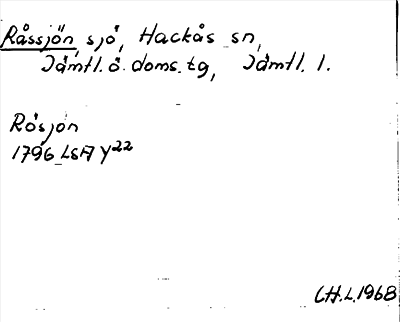 Råssjön sjö, Hackås sn,
Jämtl. ö. doms. tg, Jämtl. l.
Rösjön
1796 LSA Y22
CH.L. 1968